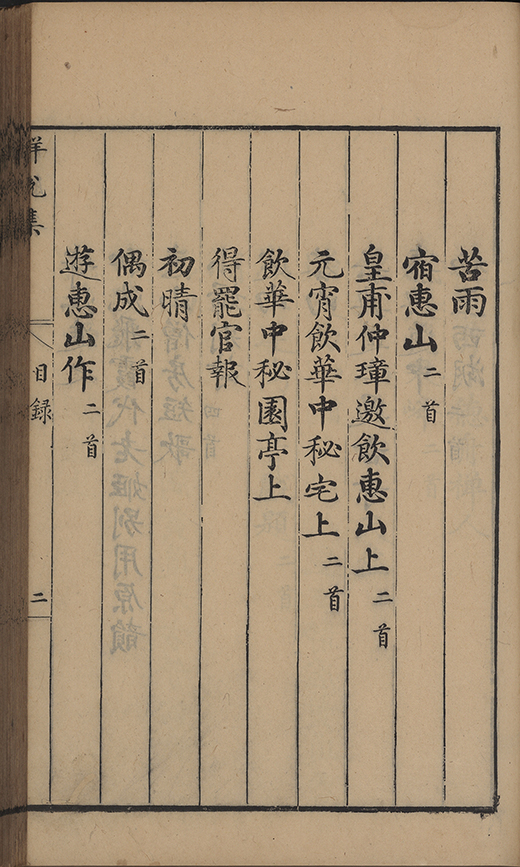 苦雨
宿惠山二首
皇甫仲璋邀飲惠山上二首
元宵飲華中秘宅上二首
飲華中秘園亭上
得罷官報
初晴
偶成二首
遊惠山作二首
集
目録
二